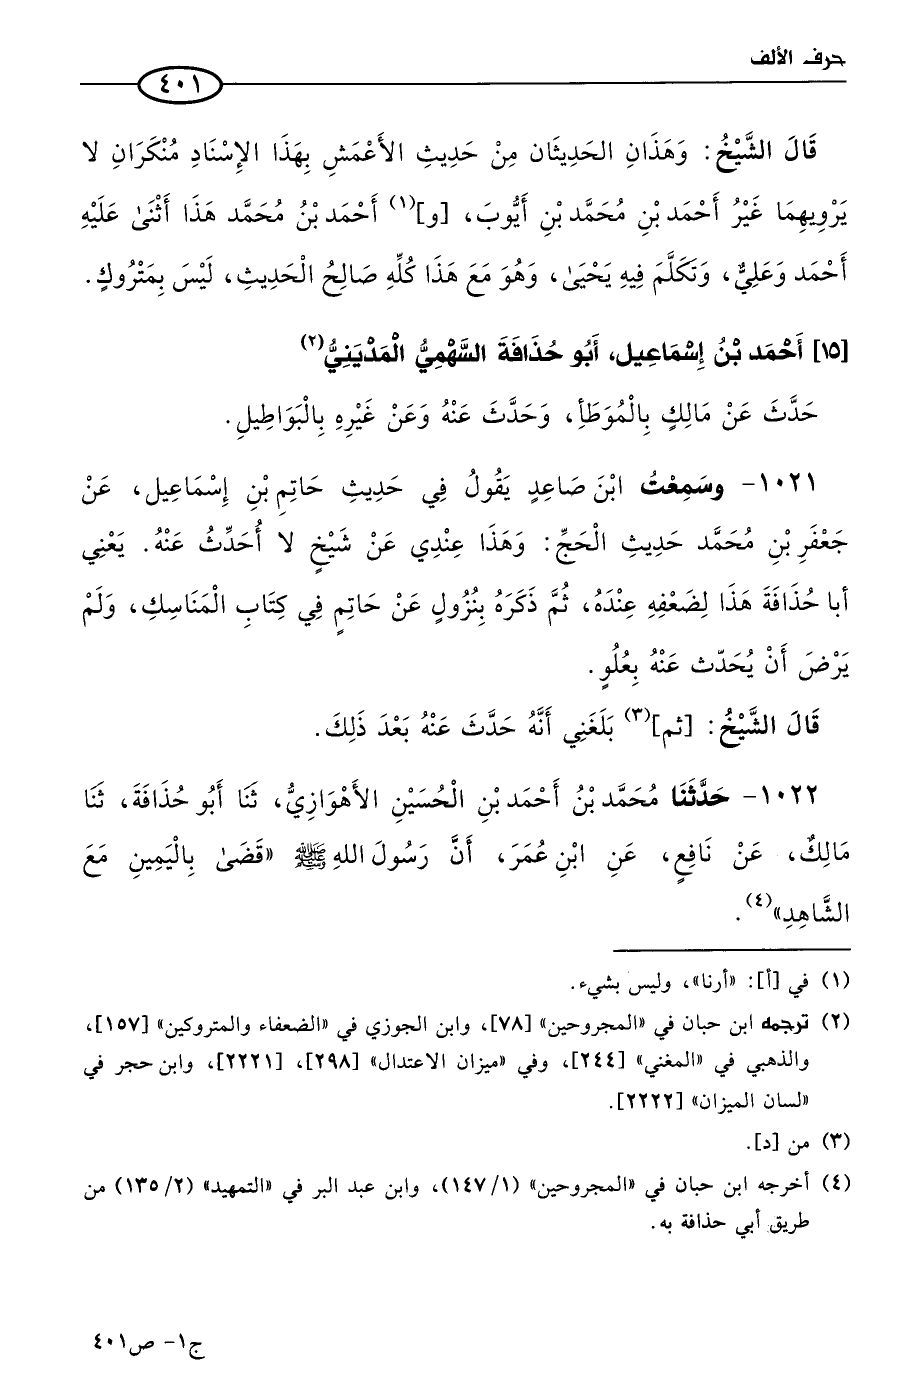 حرف الألف
٤٠١
قَالَ الشَّيْخُ: وَهَذَانِ الحَدِيثَان مِنْ حَدِيثِ الأَعْمَشِ بِهَذَا الإِسْنَادِ مُنْكَرَانِ لا
يَرْوِيهِمَا غَيْرُ أَحْمَد بْنِ مُحَمَّد بْنِ أَيُّوبَ، [و](١) أَحْمَد بْنُ مُحَمَّد هَذَا أَثْنَىٰ عَلَيْهِ
أَحْمَد وَعَلِيٌّ، وَتَكَلَّمَ فِيهِ يَحْيَىٰ، وَهُوَ مَعَ هَذَا كُلِّهِ صَالِحُ الْحَدِيثِ، لَيْسَ بِمَتْرُوكٍ.
[١٥] أَحْمَد بْنُ إِسْمَاعِيل، أَبُو حُذَافَةَ السَّهْمِيُّ الْمَدْيَنِيُّ(٢)
حَدَّثَ عَنْ مَالِكٍ بِالْمُوَطَأِ، وَحَدَّثَ عَنْهُ وَعَنْ غَيْرِهِ بِالْبَوَاطِيلِ.
١٠٢١- وسَمِعْتُ ابْنَ صَاعِدٍ يَقُولُ فِي حَدِيثِ حَاتِمِ بْنِ إِسْمَاعِيل، عَنْ
جَعْفَرِ بْنِ مُحَمَّد حَدِيثِ الْحَجِّ: وَهَذَا عِنْدِي عَنْ شَيْخٍ لا أُحَدِّثُ عَنْهُ. يَعْنِي
أبا حُذَافَةَ هَذَا لِضَعْفِهِ عِنْدَهُ، ثُمَّ ذَكَرَهُ بِنُزُولٍ عَنْ حَاتِمٍ فِي كِتَابِ الْمَنَاسِكِ، وَلَمْ
يَرْضَ أَنْ يُحَدّث عَنْهُ بِعُلُوٍ.
قَالَ الشَّيْخُ: [ثم](٣) بَلَغَنِي أَنَّهُ حَدَّثَ عَنْهُ بَعْدَ ذَلِكَ.
١٠٢٢- حَدَّثَنَا مُحَمَّد بْنُ أَحْمَد بْنِ الْحُسَيْنِ الأَهْوَازِيُّ، ثَنَا أَبُو حُذَافَةَ، ثَنَا
مَالِكٌ، عَنْ نَافِعٍ، عَنِ ابْنِ عُمَرَ، أَنَّ رَسُولَ اللهِ ﷺ «قَضَىٰ بِالْيَمِينِ مَعَ
الشَّاهِدِ»(٤).
(١) في [أ]: «أرنا»، وليس بشيء.
(٢) ترجمه ابن حبان في «المجروحين» [٧٨]، وابن الجوزي في «الضعفاء والمتروكين» [١٥٧]،
والذهبي في «المغني» [٢٤٤]، وفي «ميزان الاعتدال» [٢٩٨]، [٢٢٢١]، وابن حجر في
«لسان الميزان» [٢٢٢٢].
(٣) من [د].
(٤) أخرجه ابن حبان في «المجروحين» (١/ ١٤٧)، وابن عبد البر في «التمهيد» (٢/ ١٣٥) من
طريق أبي حذافة به.
ج١- ص٤٠١